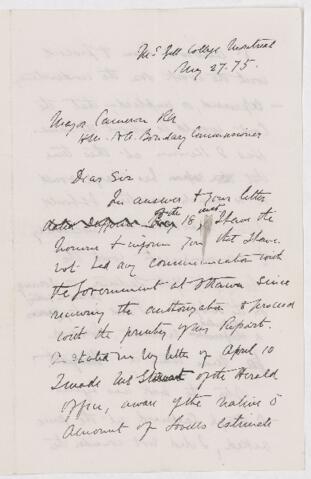 McGill College Montreal
May 27. 75.
Major Cameron RA
H.M. N.A. Boundary Commissioner
Dear Sir
In answer to your letter
of the 18 inst I have the
honour to inform you that I have
not had any communication with
the Government at Ottawa since
receiving the authorization to proceed
with the printing of my Report.
As stated in my letter of April 10
I made Mr of the Herald
office, aware of the nature &
amount of Lovells estimate